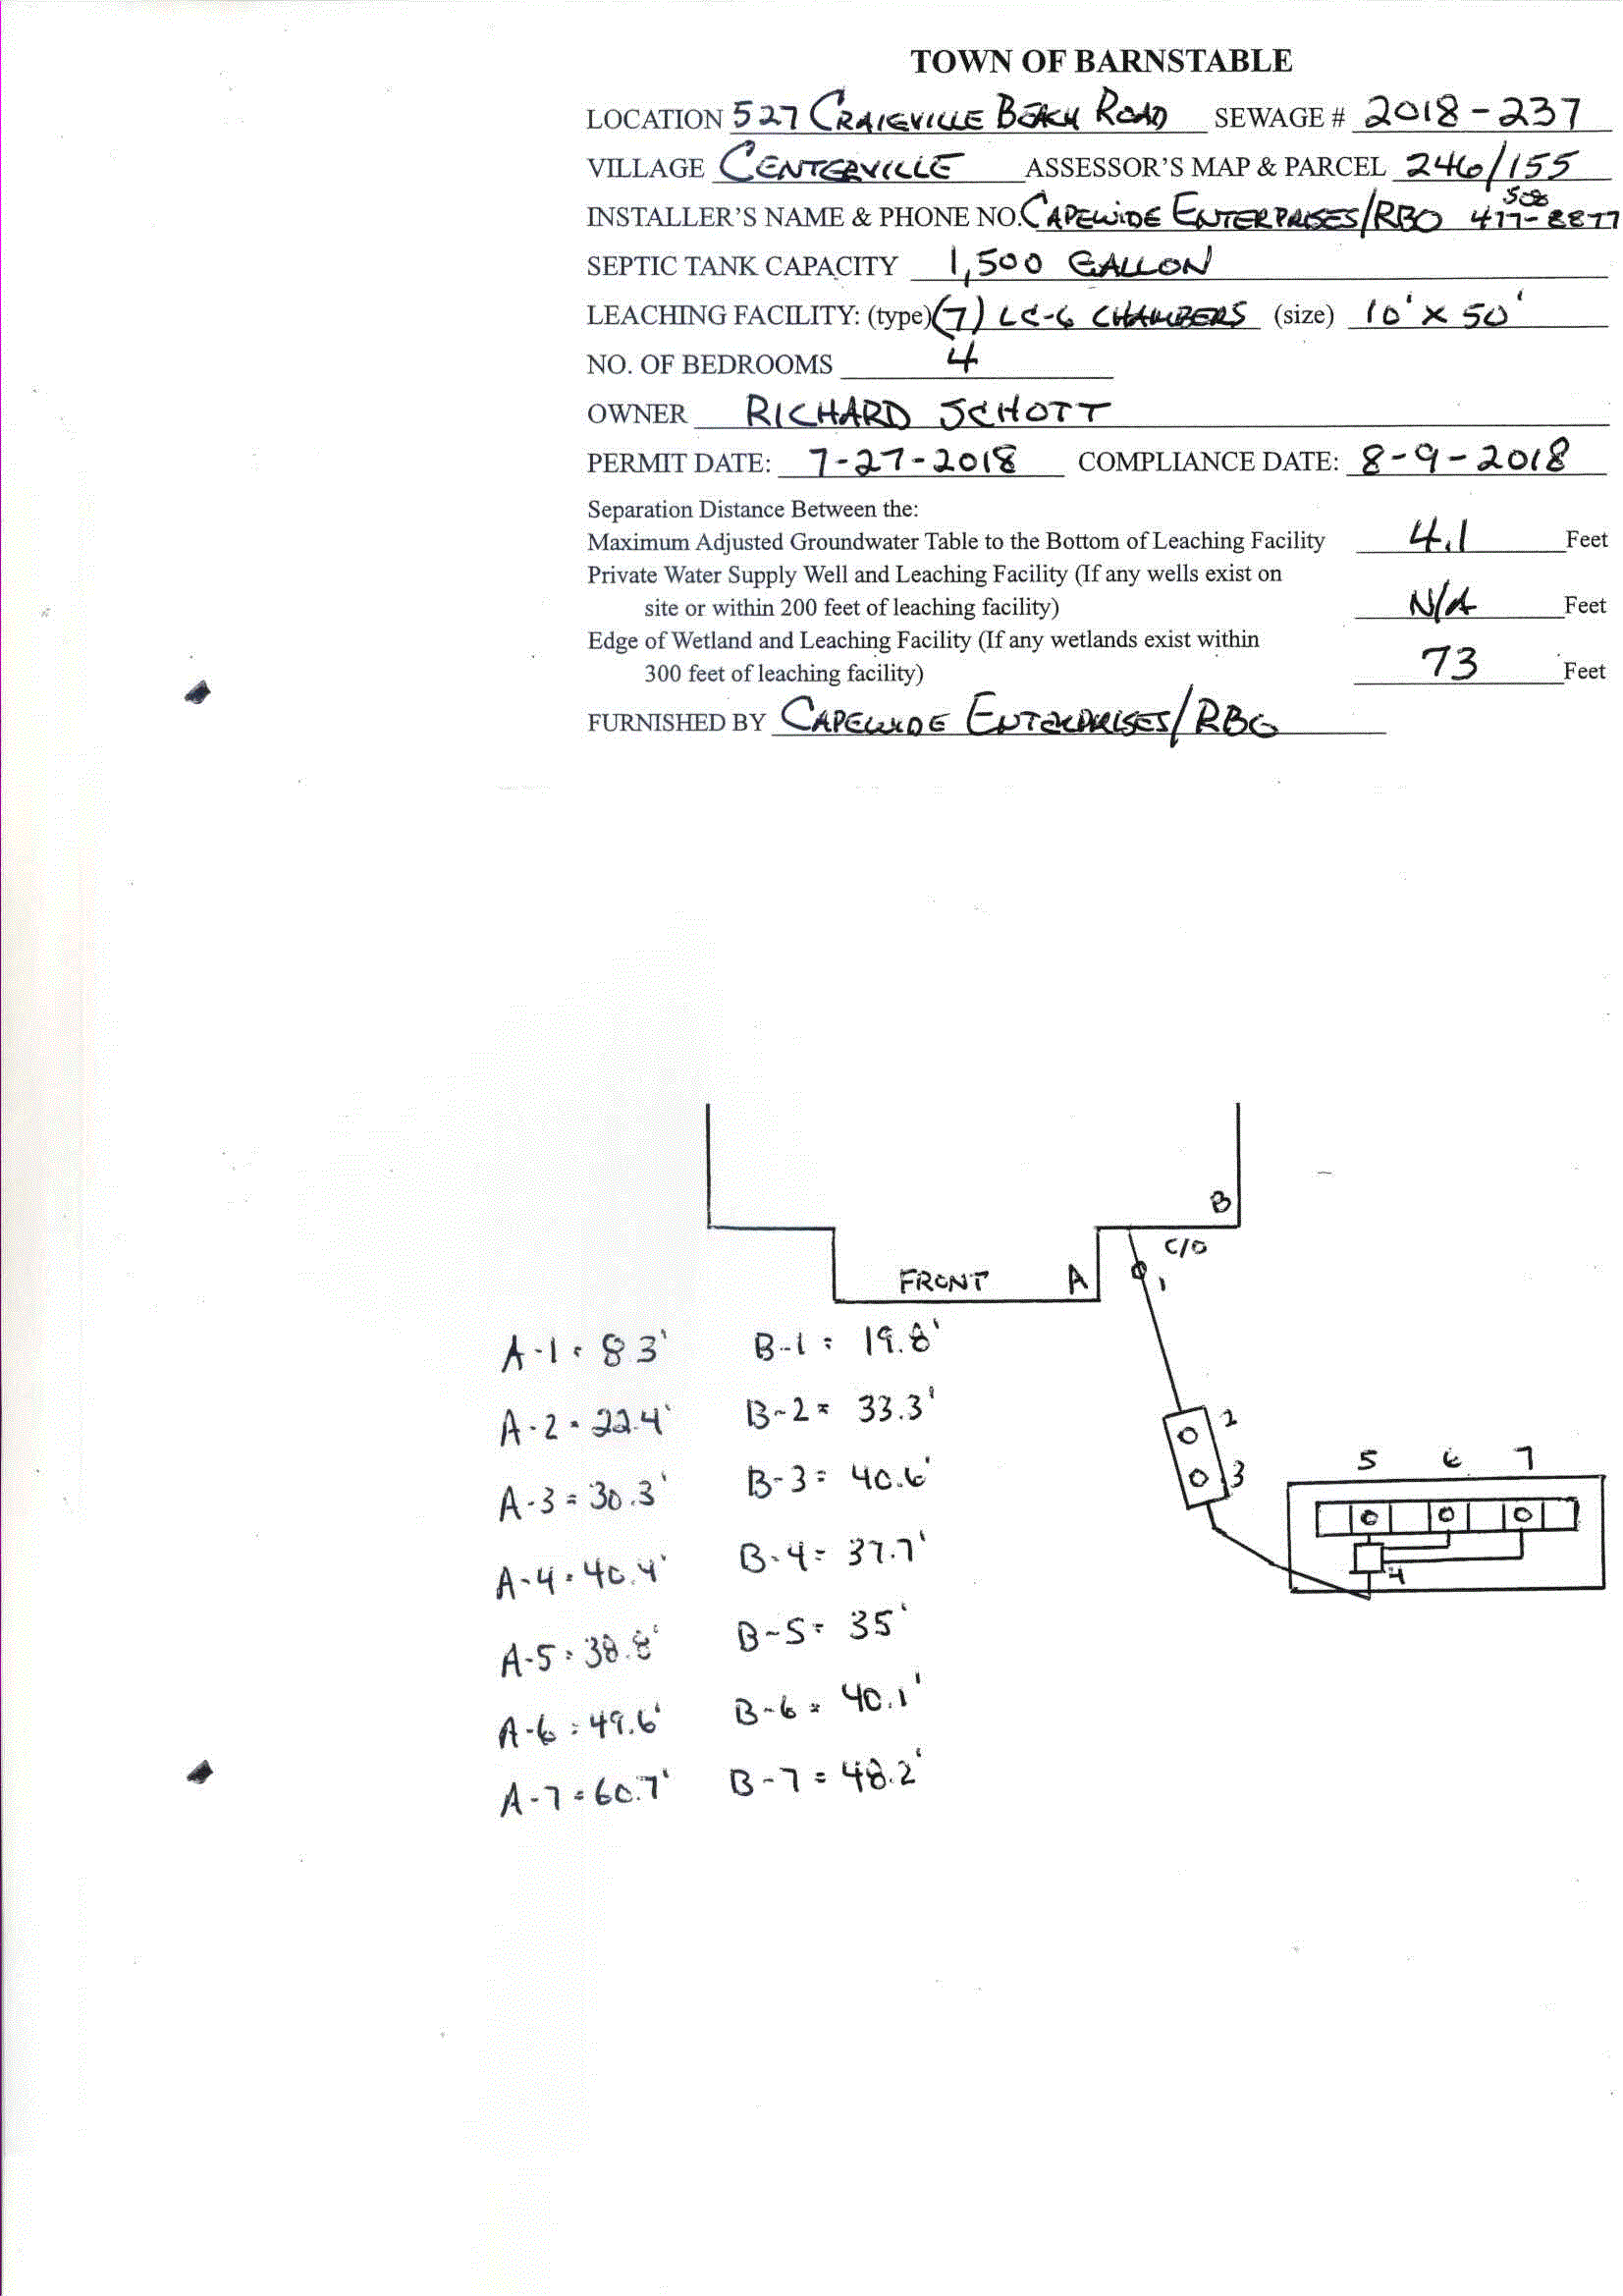 TOWN OF BARNSTABLE
LOCATION 527 CRAIGVILLE BEACH ROAD SEWAGE # 2018-237
VILLAGE CENTERVILLE ASSESSOR'S MAP & PARCEL 246/155
INSTALLER'S NAME & PHONE NO. CAPEWIDE ENTERPRISES/RBO 508 477-8877
SEPTIC TANK CAPACITY 1,500 GALLON
LEACHING FACILITY: (type) (7) LC-6 CHAMBERS (size) 10' X 50'
NO. OF BEDROOMS 4
OWNER RICHARD SCHOTT
PERMIT DATE: 7-27-2018 COMPLIANCE DATE: 8-9-2018
Separation Distance Between the:
Maximum Adjusted Groundwater Table to the Bottom of Leaching Facility 4.1 Feet
Private Water Supply Well and Leaching Facility (If any wells exist on
site or within 200 feet of leaching facility) N/A Feet
Edge of Wetland and Leaching Facility (If any wetlands exist within
300 feet of leaching facility) 73 Feet
FURNISHED BY CAPEWIDE ENTERPRISES/RBO
B
C/O
FRONT A 1
A-1= 8.3' B-1= 19.8'
A-2= 22.4' B-2= 33.3'
2
A-3= 30.3' B-3= 40.6'
3
5 6 7
A-4= 40.4' B-4= 37.7'
4
A-5= 38.8' B-5= 35'
A-6= 49.6' B-6= 40.1'
A-7= 60.7' B-7= 48.2'